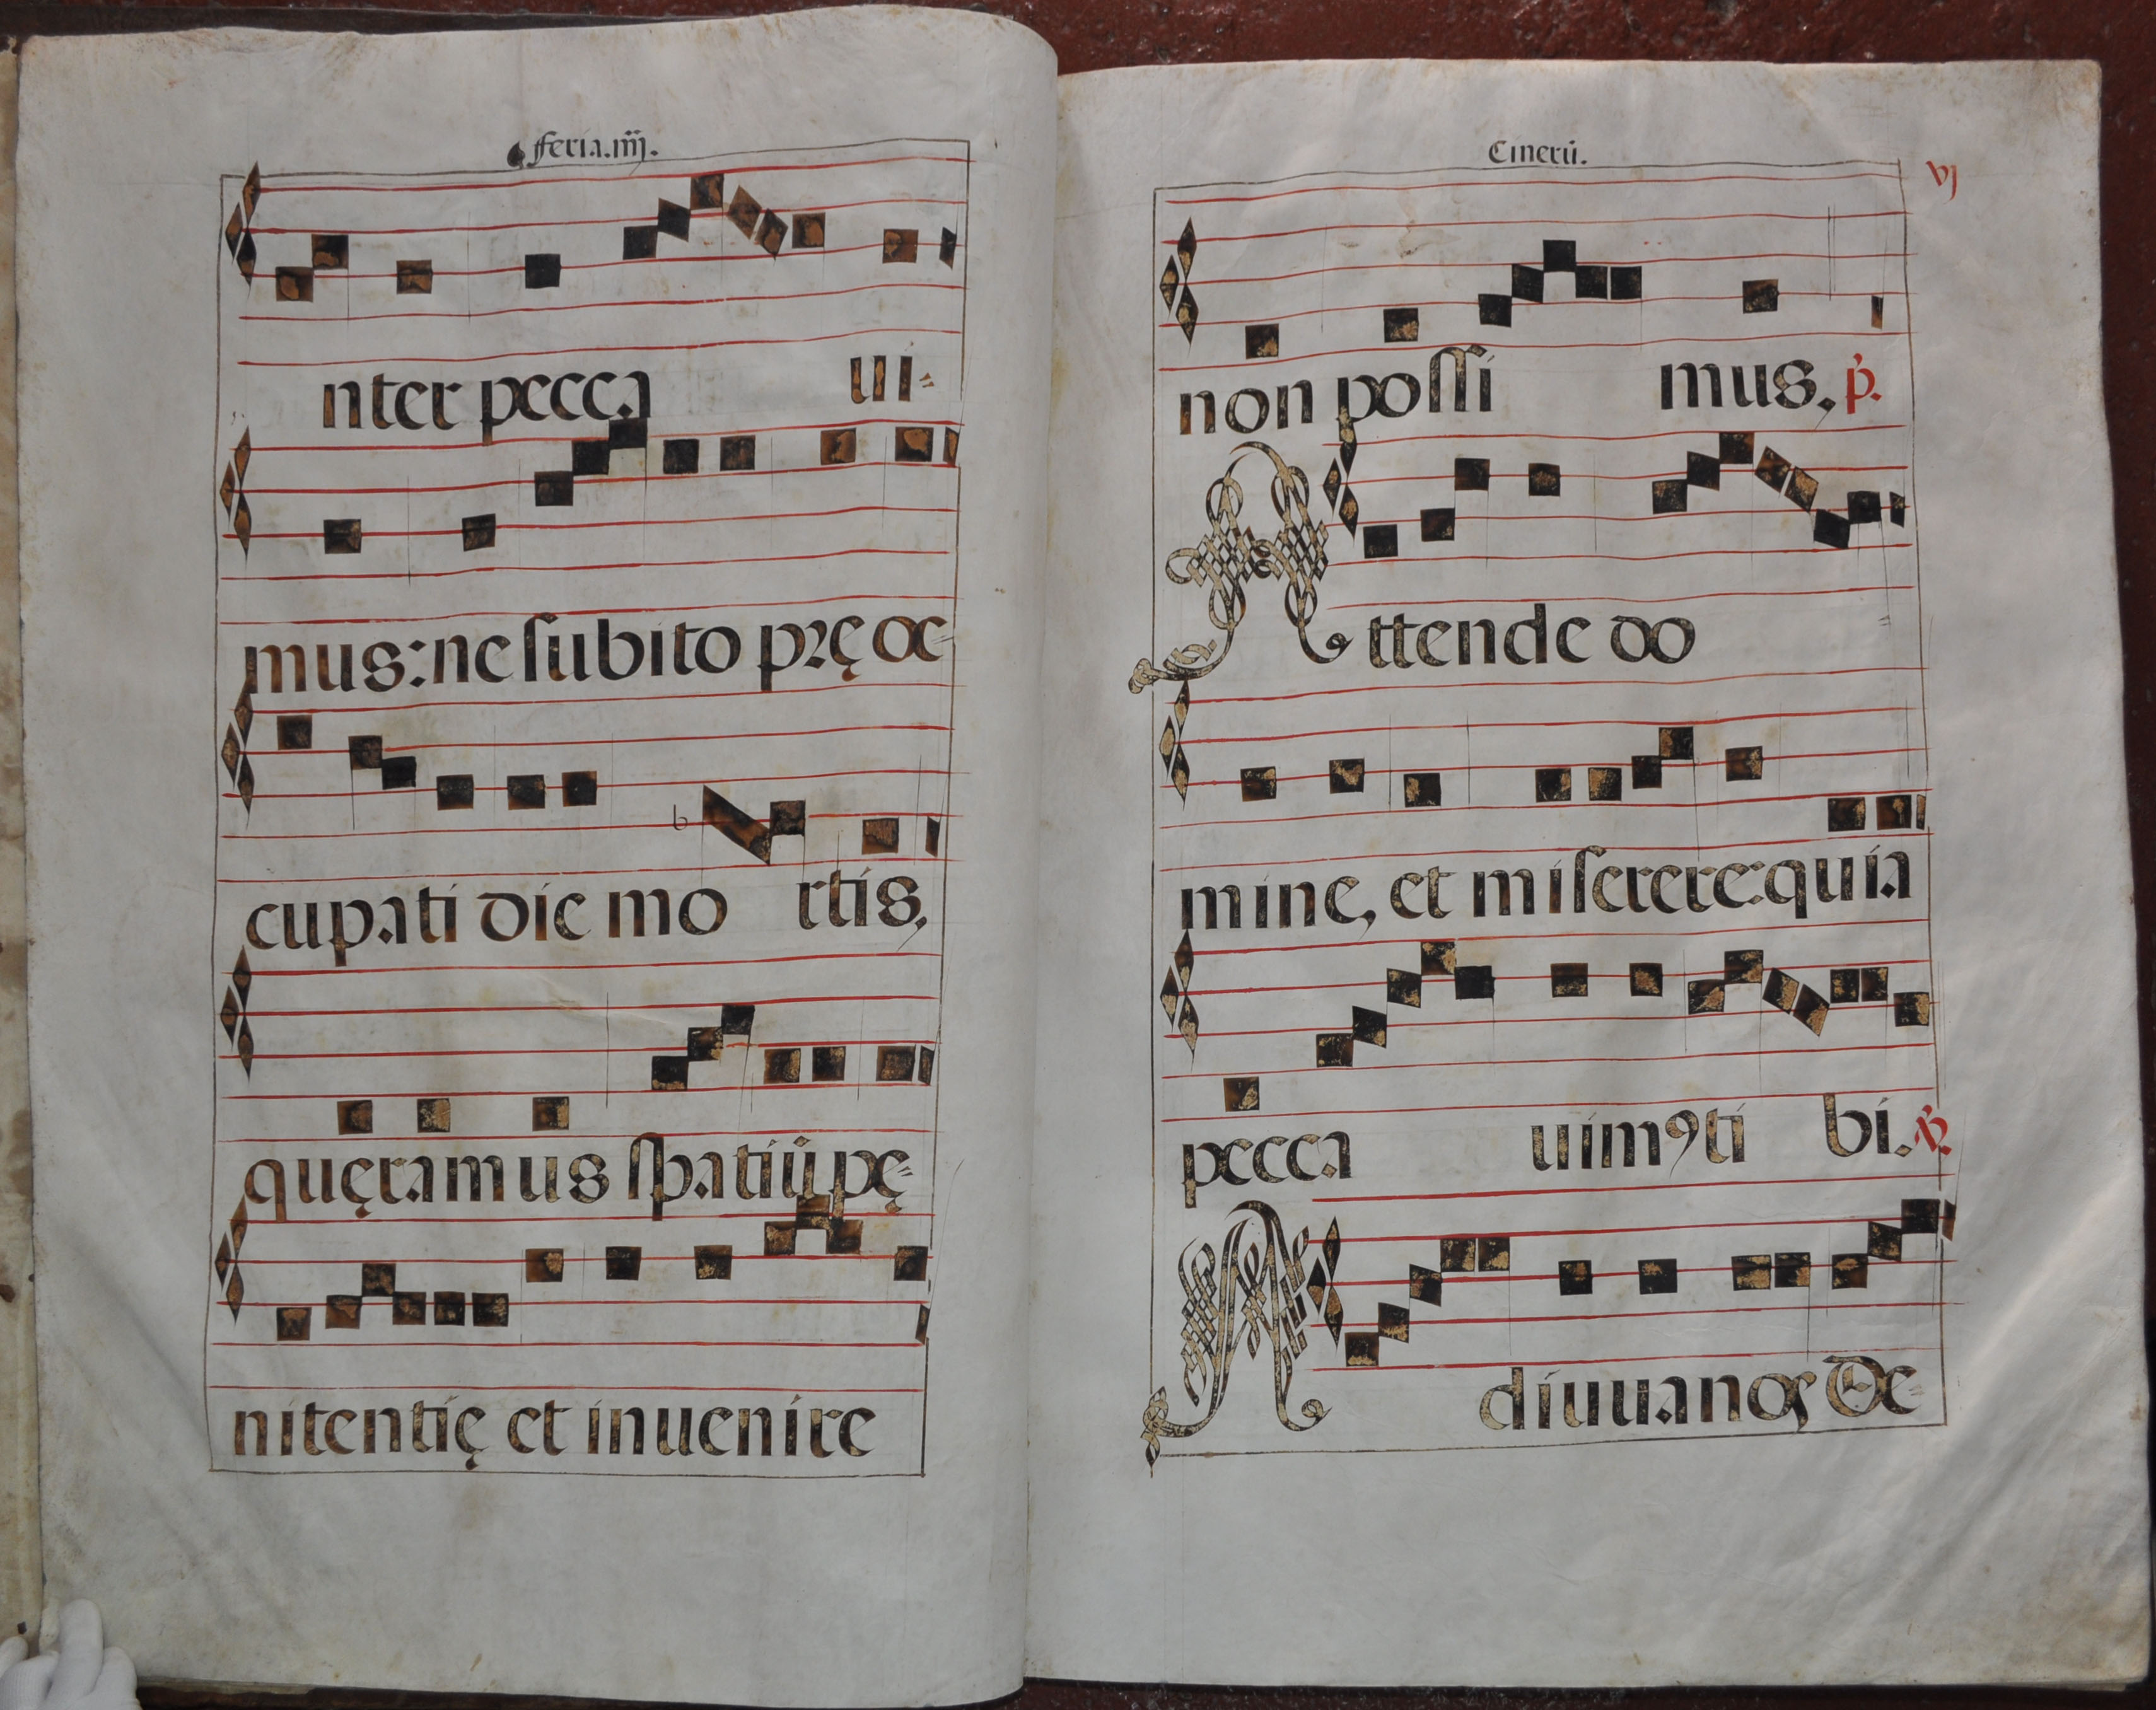 feria.iiij.
nter pecca ui-
mus: ne subito prę oc-
cupati die mo rtis,
quęramus spatiū pę-
nitentię et inuenire
Cinerū.
vj
non possi mus, p̄.
Attende do
mine, et miserere: quia
pecca uimꝰ ti bi. ℟.
Adiuua nos De-